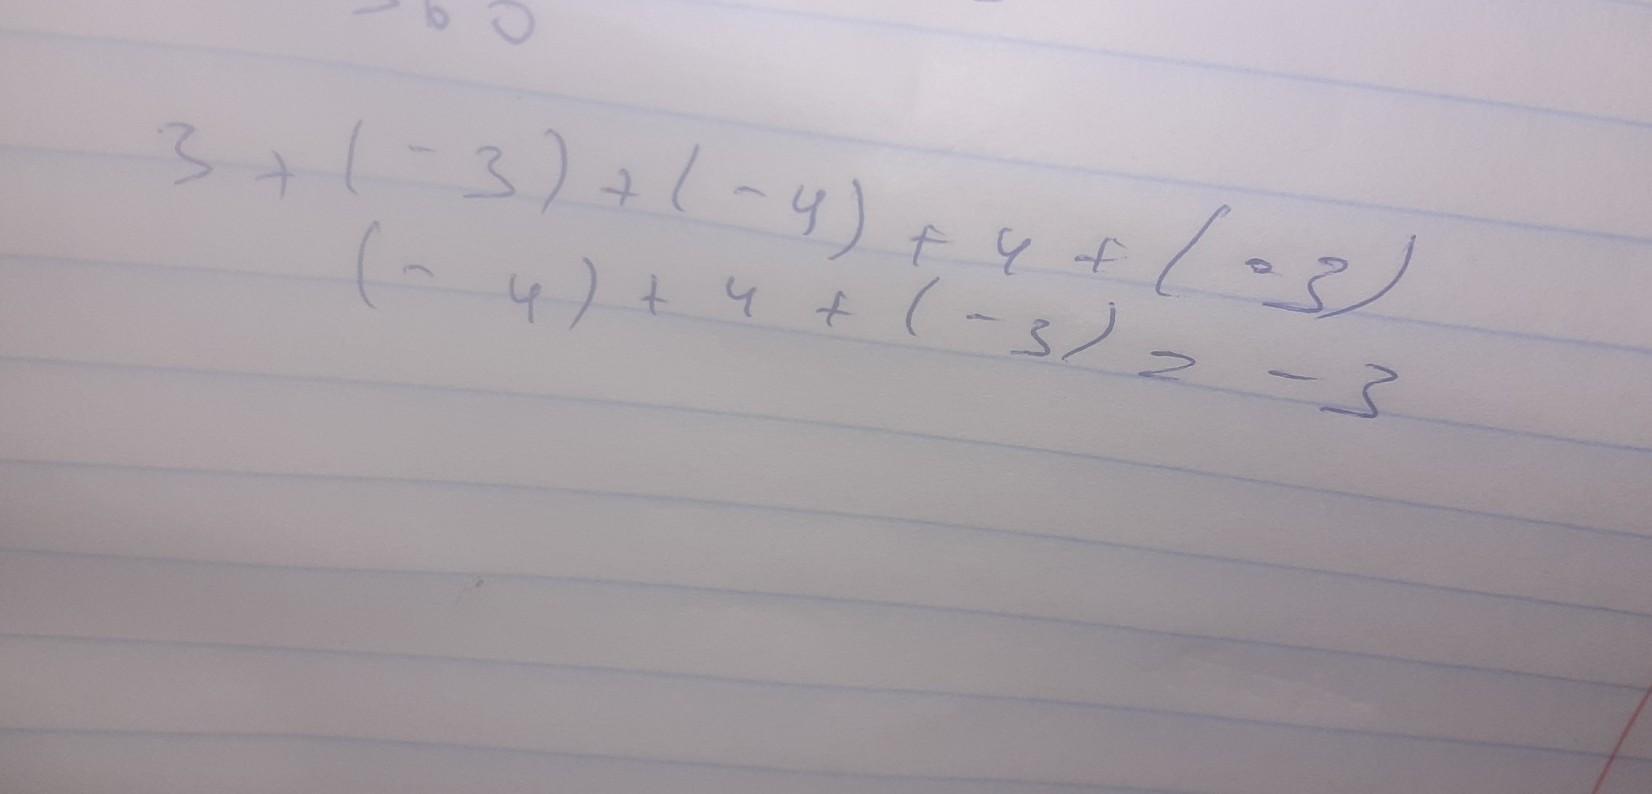 3 + (-3) + (-4) + 4 + (-3)
(-4) + 4 + (-3) = -3